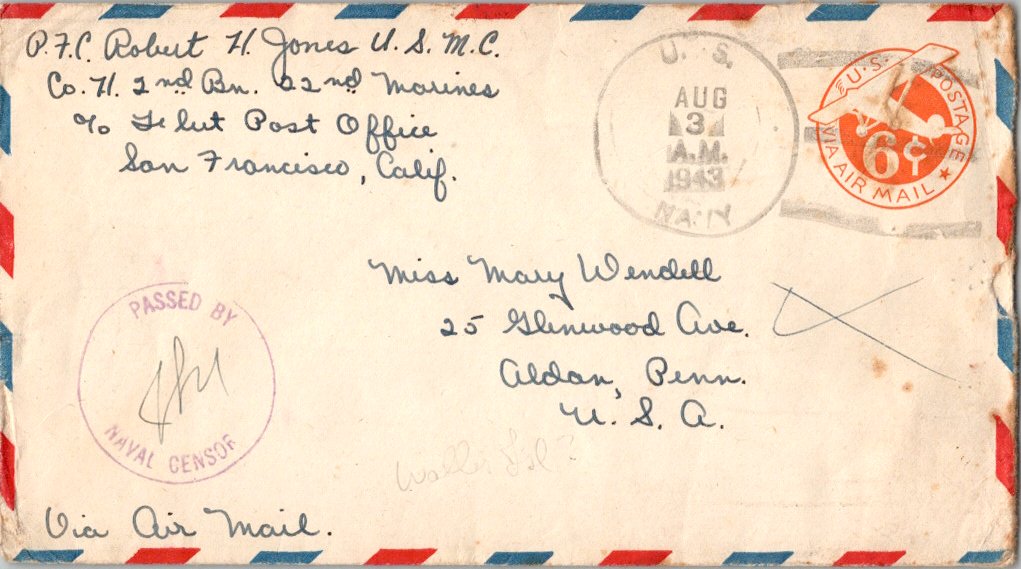 P.F.C. Robert H. Jones U.S.M.C.
Co. H. 2nd Bn. 22nd Marines
c/o Fleet Post Office
San Francisco, Calif.
U. S.
AUG
3
A.M.
1943
NAVY
U.S. POSTAGE
6¢
VIA AIR MAIL
Miss Mary Wendell
25 Glenwood Ave.
Aldan, Penn.
U. S. A.
PASSED BY
NAVAL CENSOR
Wallis Isl?
Via Air Mail.